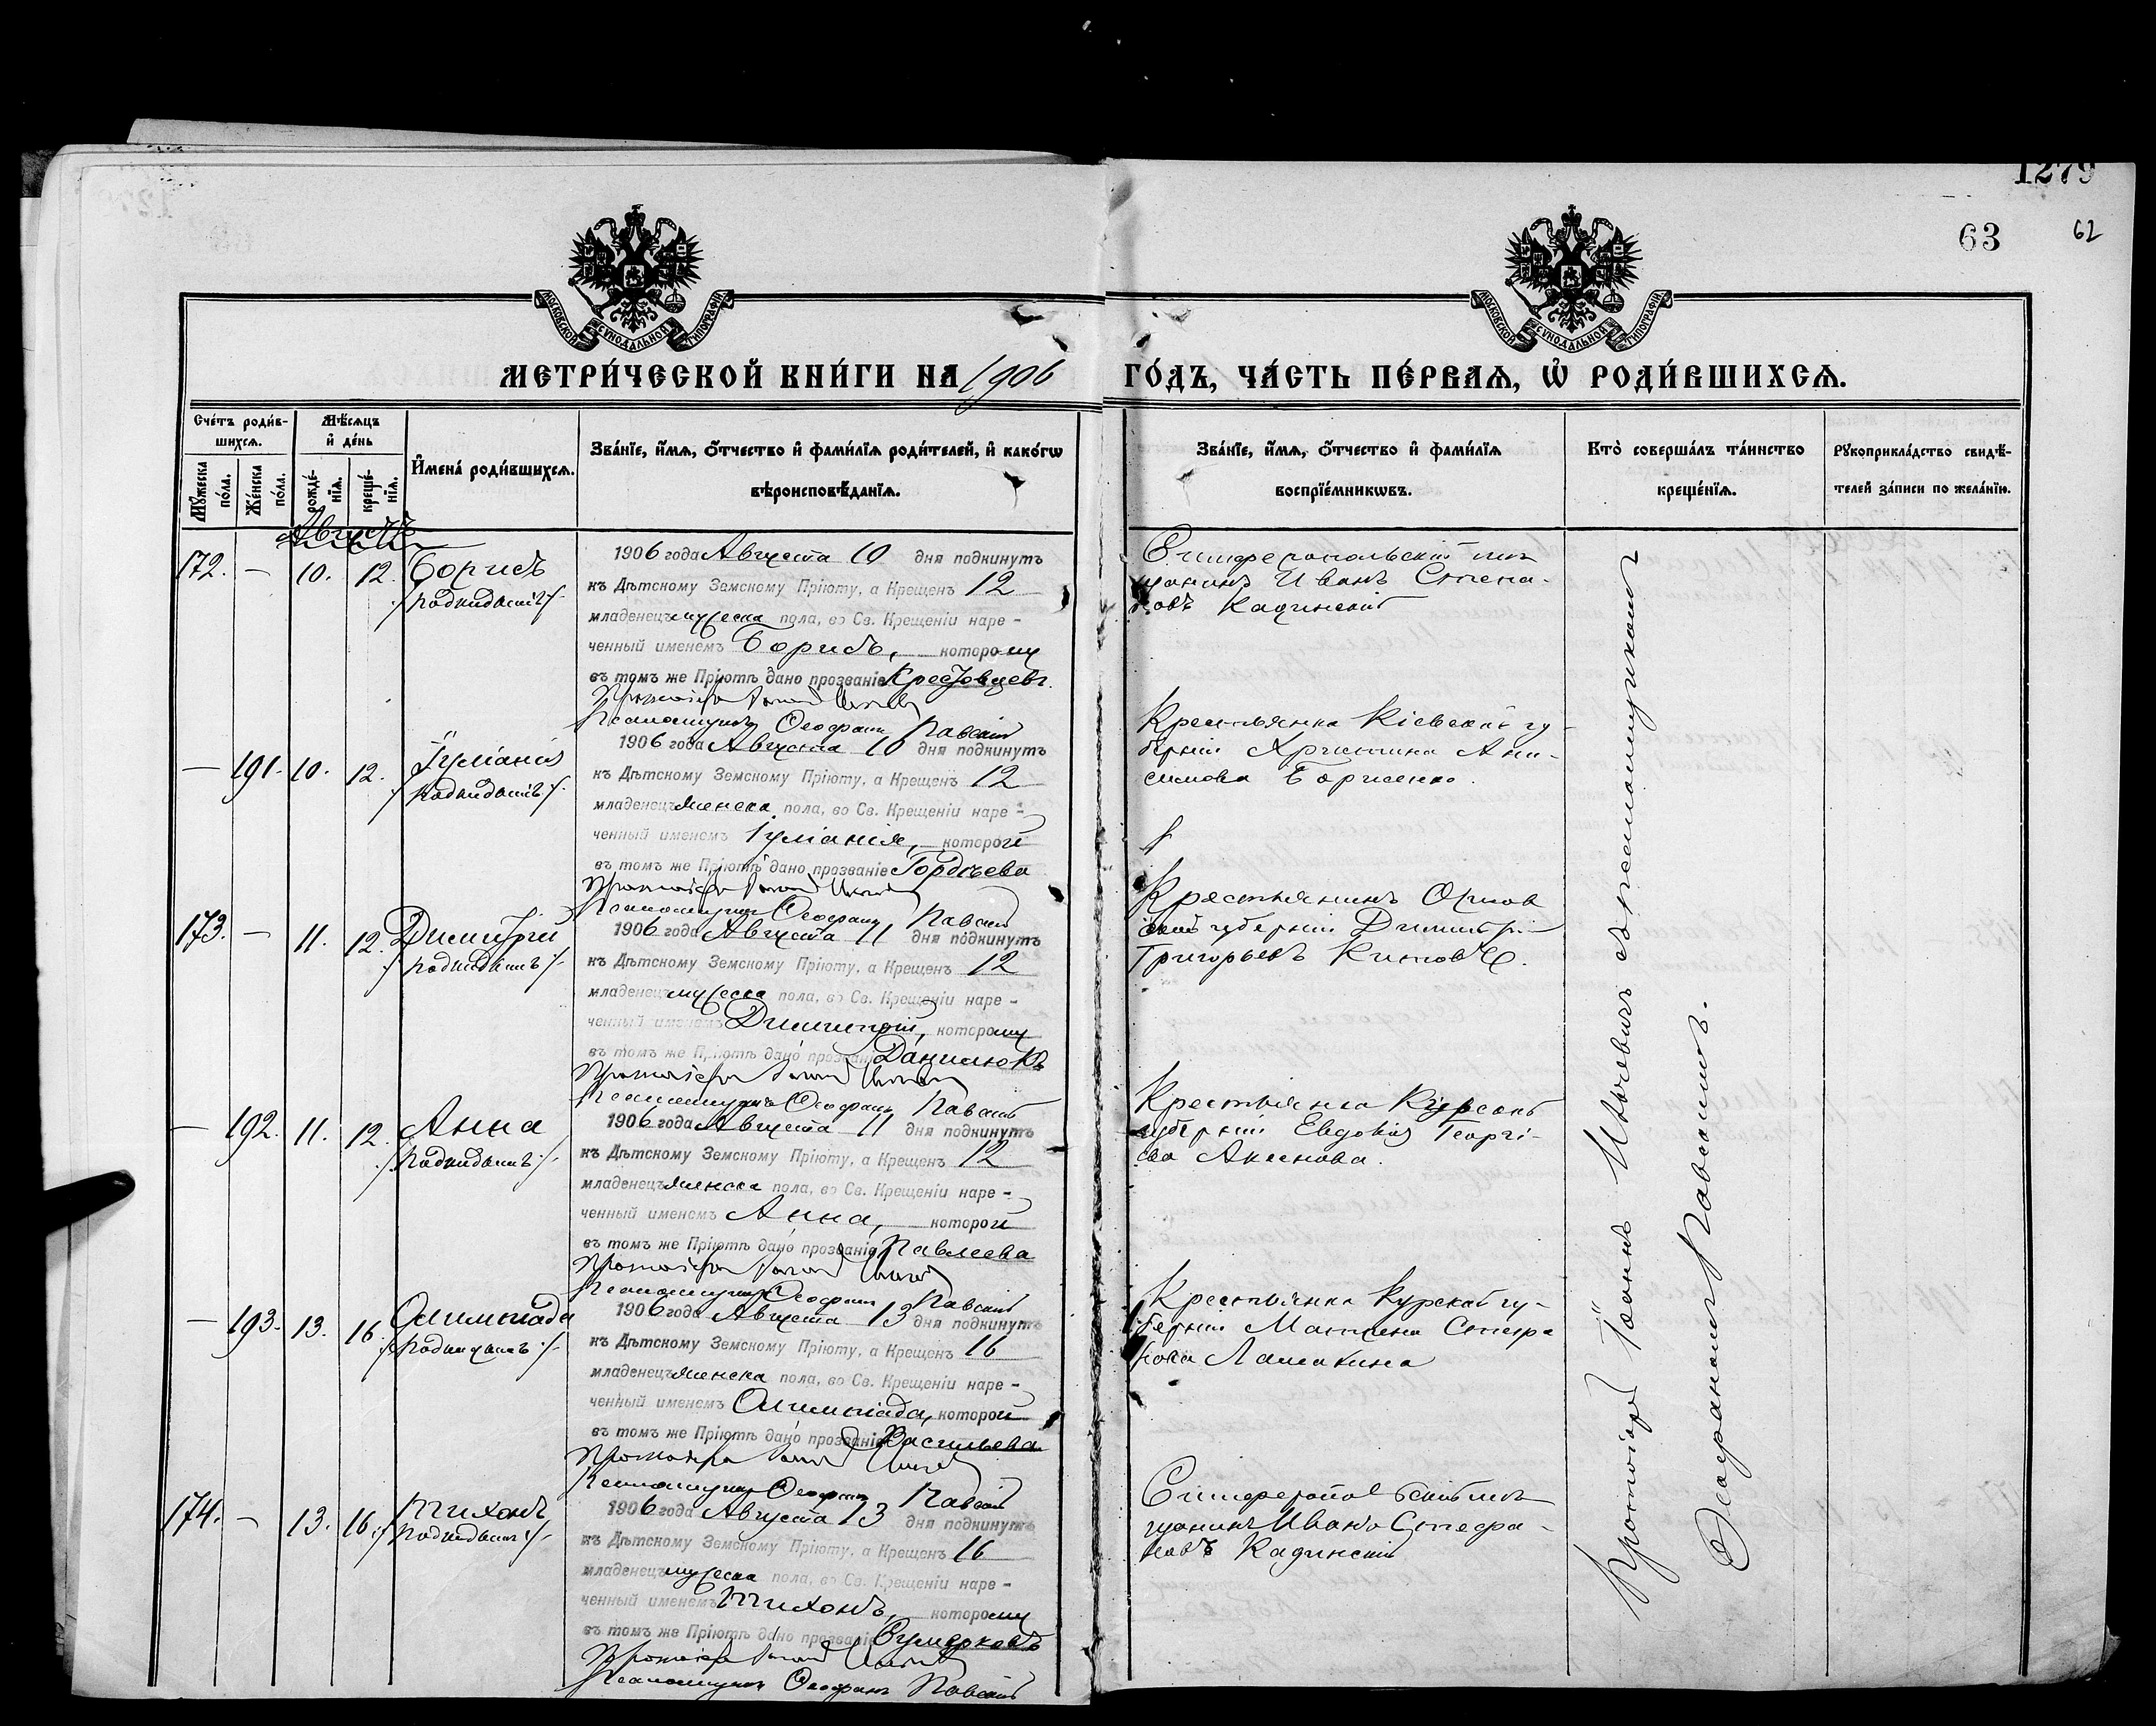 1279
63
62
МОСКОВСКОЙ СѴНОДАЛЬНОЙ ТИПОГРАФІИ
МОСКОВСКОЙ СѴНОДАЛЬНОЙ ТИПОГРАФІИ
МЕТРИ́ЧЕСКОЙ КНИ́ГИ НА 1906 ГО́ДЪ, ЧА́СТЬ ПЕ́РВАЯ, Ѡ РОДИ́ВШИХСЯ.
Сче́тъ роди́в-
шихся.
Мѣ́сяцъ
и де́нь
Мꙋжеска по́ла.
Же́нска по́ла.
рожде́-
нїя.
креще́-
нїя.
Имена́ роди́вшихся.
Зва́нїе, и́мя, ѻ́тчество и фами́лїя роди́телей, и како́гѡ
вѣроисповѣ́данїя.
Зва́нїе, и́мя, ѻ́тчество и фами́лїя
воспрїе́мникѡвъ.
Кто̀ соверша́лъ та́инство
креще́нїя.
Рꙋкоприкла́дство свидѣ́-
телей за́писи по жела́нїю.
Августъ
172. — 10. 12. Борисъ
./подкидышъ/.
1906 года Августа 10 дня подкинутъ
къ Дѣтскому Земскому Пріюту, а Крещенъ 12
младенецъ мужеска пола, во Св. Крещеніи наре-
ченный именемъ Борисъ, которому
въ томъ же Пріютѣ дано прозваніе Крестовцевъ.
Протоіерей
Псаломщикъ Ѳеофанъ Павскій
Симферопольскій мѣ
щанинъ Иванъ Стефа-
новъ Кадинскій
— 191. 10. 12. Іуліанія
./подкидышъ/.
1906 года Августа 10 дня подкинутъ
къ Дѣтскому Земскому Пріюту, а Крещенъ 12
младенецъ женска пола, во Св. Крещеніи наре-
ченный именемъ Іуліанія, которой
въ томъ же Пріютѣ дано прозваніе Гордѣева
Протоіерей
Псаломщикъ Ѳеофанъ Павскій
Крестьянка Кіевской гу-
берніи Христина Ани-
симова Борисенко.
173. — 11. 12. Димитрій
./подкидышъ/.
1906 года Августа 11 дня подкинутъ
къ Дѣтскому Земскому Пріюту, а Крещенъ 12
младенецъ мужеска пола, во Св. Крещеніи наре-
ченный именемъ Димитрій, которому
въ томъ же Пріютѣ дано прозваніе Данилюкъ
Протоіерей
Псаломщикъ Ѳеофанъ Павскій
Крестьянинъ Орлов
ской губерніи Димитрій
Григорьевъ
— 192. 11. 12. Анна
./подкидышъ/.
1906 года Августа 11 дня подкинутъ
къ Дѣтскому Земскому Пріюту, а Крещенъ 12
младенецъ женска пола, во Св. Крещеніи наре-
ченный именемъ Анна, которой
въ томъ же Пріютѣ дано прозваніе Павлеева
Протоіерей
Псаломщикъ Ѳеофанъ Павскій
Крестьянка Курской
губерніи Евдокія Георгі-
ева Аксенова.
— 193. 13. 16. Олимпіада
./подкидышъ/.
1906 года Августа 13 дня подкинутъ
къ Дѣтскому Земскому Пріюту, а Крещенъ 16
младенецъ женска пола, во Св. Крещеніи наре-
ченный именемъ Олимпіада, которой
въ томъ же Пріютѣ дано прозваніе Васильева
Протоіерей
Псаломщикъ Ѳеофанъ Павскій
Крестьянка Курской гу-
берніи Матрена Стефа
нова Лашкина
174. — 13. 16. Тихонъ
./подкидышъ/.
1906 года Августа 13 дня подкинутъ
къ Дѣтскому Земскому Пріюту, а Крещенъ 16
младенецъ мужеска пола, во Св. Крещеніи наре-
ченный именемъ Тихонъ, которому
въ томъ же Пріютѣ дано прозваніе Сумерковъ
Протоіерей
Псаломщикъ Ѳеофанъ Павскій
Симферопольскій мѣ
щанинъ Иванъ Стефа-
новъ Кадинскій
Протоіерей Іоаннъ Ильчевичъ съ псаломщикомъ
Ѳеофаномъ Павскимъ.